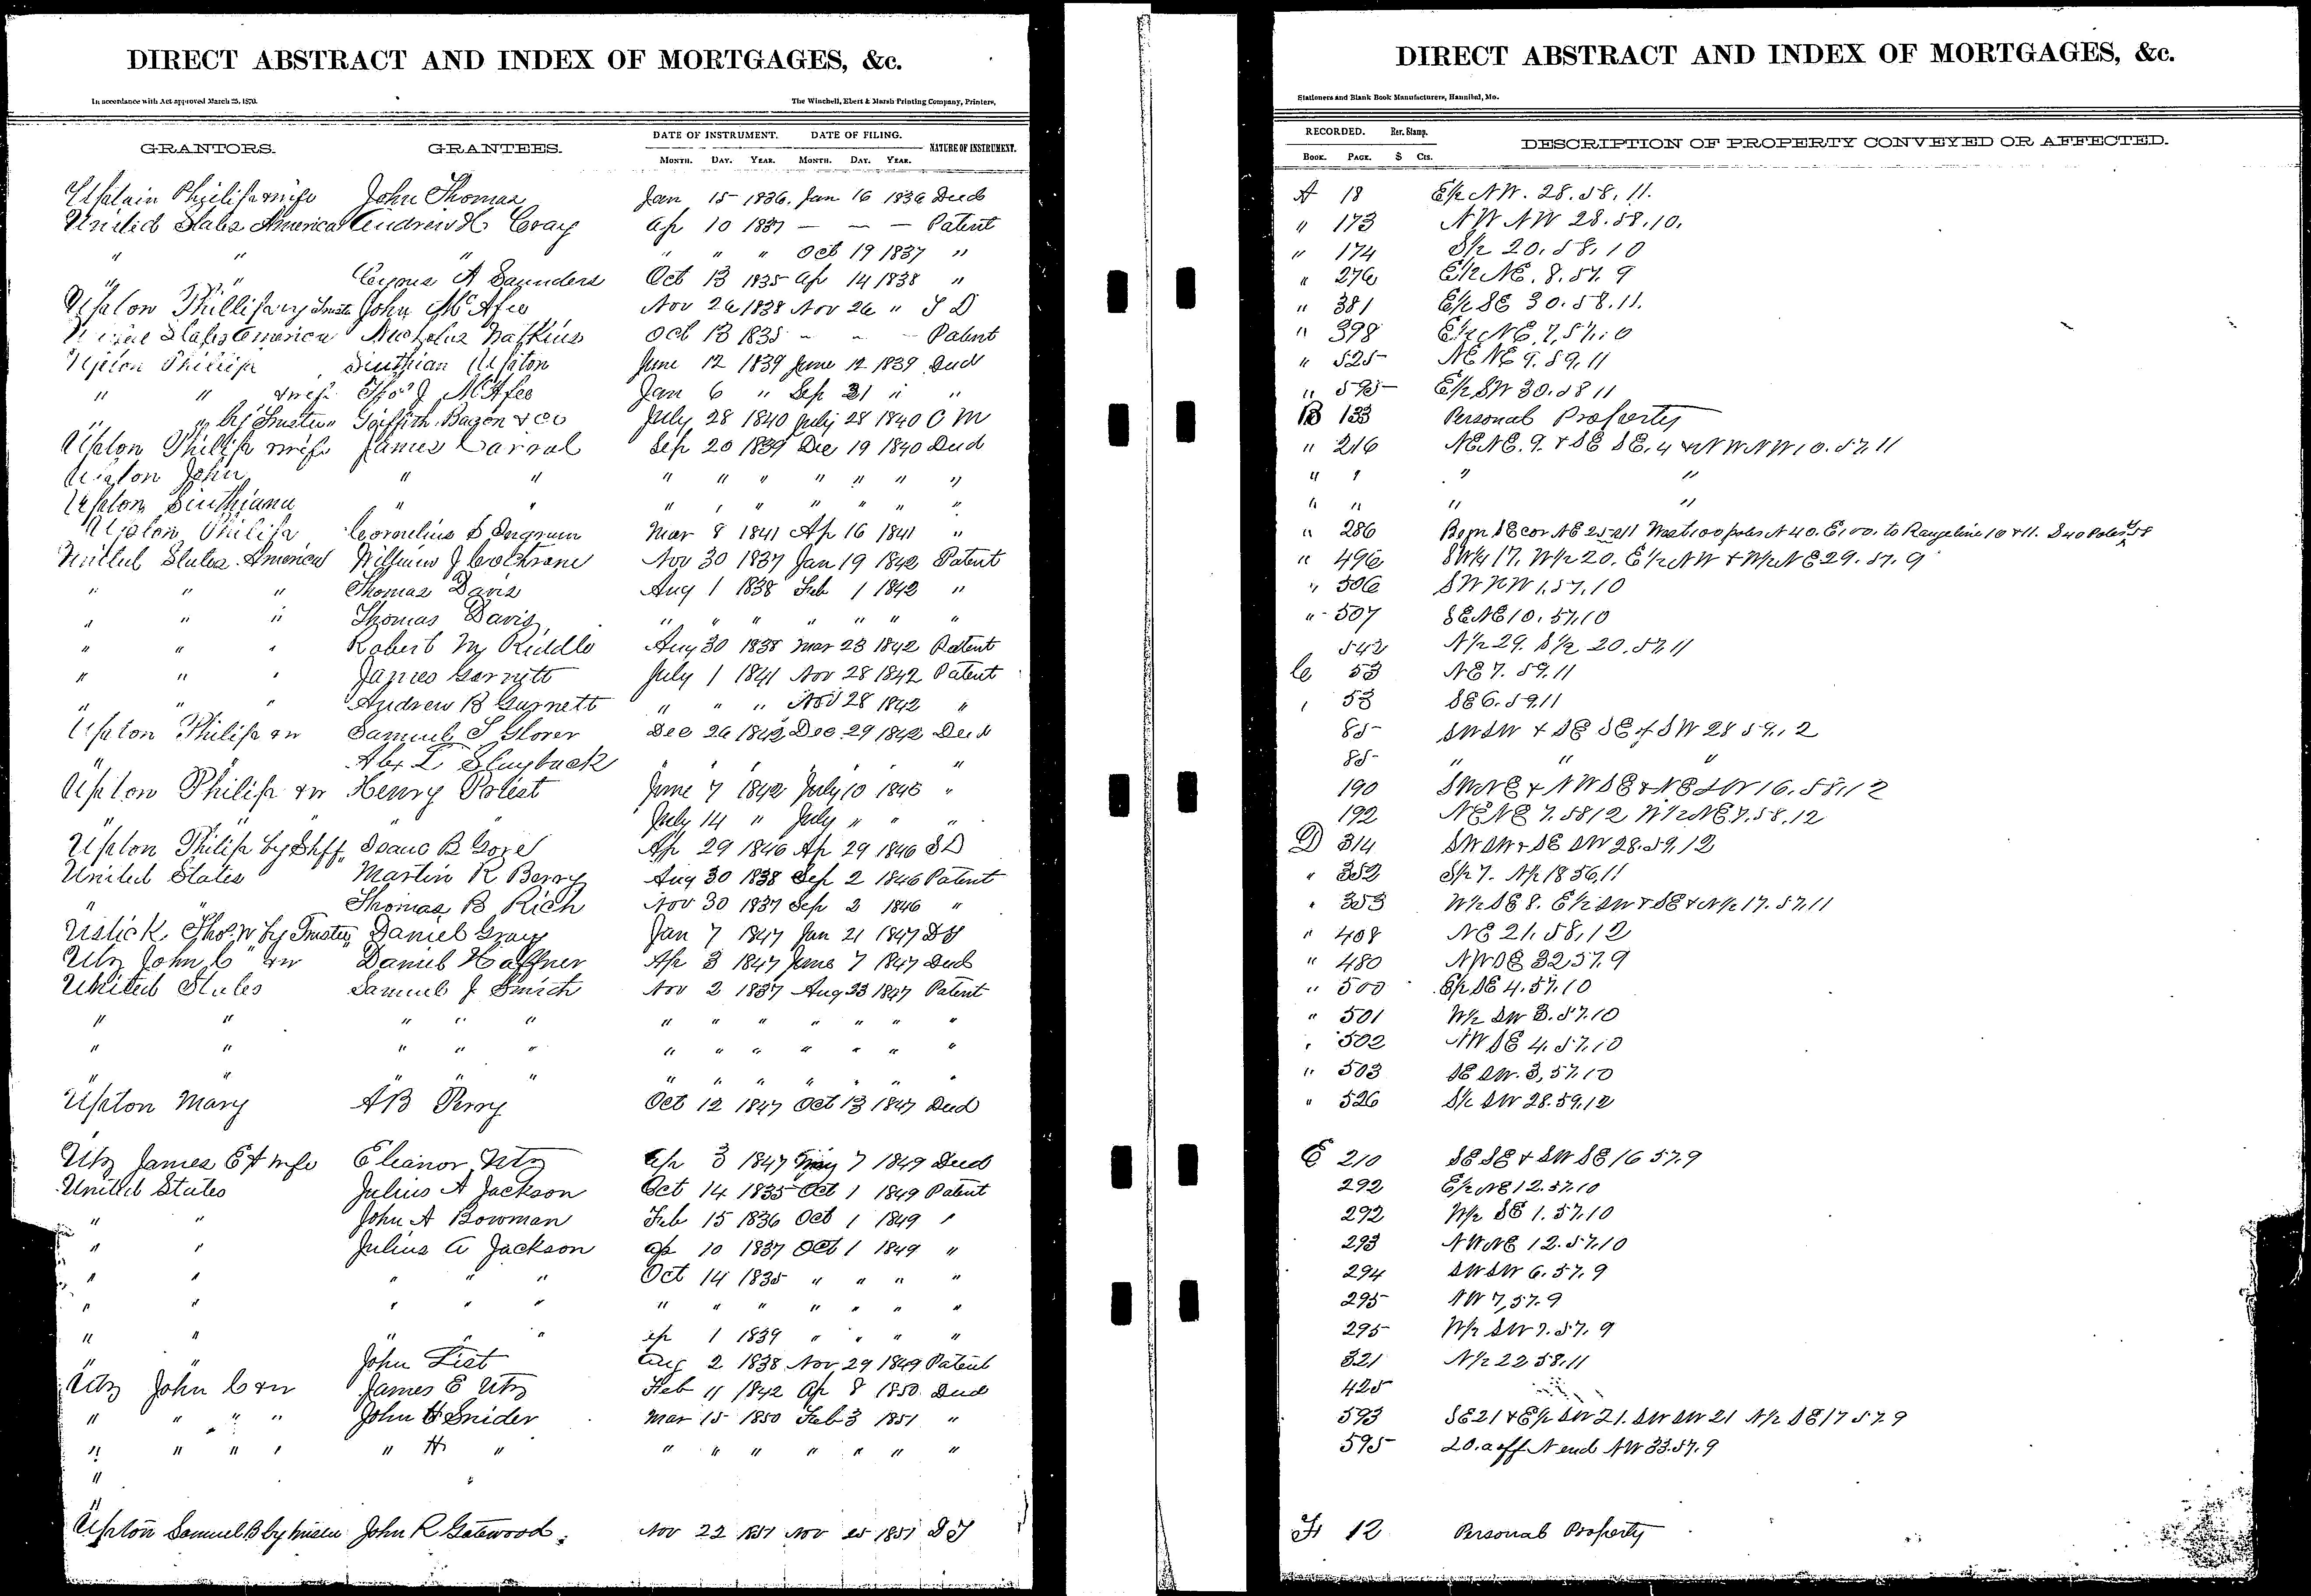 DIRECT ABSTRACT AND INDEX OF MORTGAGES, &c.
In accordance with Act approved March 25, 1870.
The Winchell, Ebert & Marsh Printing Company, Printers,
GRANTORS. GRANTEES. DATE OF INSTRUMENT. DATE OF FILING. NATURE OF INSTRUMENT.
MONTH. DAY. YEAR. MONTH. DAY. YEAR.
Philip & wife John Thomas Jan 15 1836. Jan 16 1836 Deed
United States America Andrew H Gray Ap 10 1837 — — — Patent
" " " " " " Oct 19 1837 "
" " Cyrus A Saunders Oct 13 1835 Ap 14 1838 "
Upton Phillip by John McAfee Nov 26 1838 Nov 26 " T D
United States America Nicholas Watkins Oct 13 1835 – – – Patent
Upton Phillip Sinthian Upton June 12 1839 June 12 1839 Deed
" " & wife Thos J McAfee Jan 6 " Sep 21 " "
" " by Trustee Griffith, Bacon & Co July 28 1840 July 28 1840 C M
Upton Phillip & wife James Sep 20 1839 Dec 19 1840 Deed
Upton John " " " " " " " " "
Upton Sinthiana " " " " " " " " "
Upton Philip Cornelius S Ingram Mar 8 1841 Ap 16 1841 "
United States America William J Cochrane Nov 30 1837 Jan 19 1842 Patent
" " " Thomas Davis Aug 1 1838 Feb 1 1842 "
" " " Thomas Davis " " " " " " "
" " " Robert M Riddle Aug 30 1838 Mar 23 1842 Patent
" " " James Garnett July 1 1841 Nov 28 1842 Patent
" " " Andrew B Garnett " " " Nov 28 1842 "
Upton Philip & w Samuel T Glover Dec 26 1842 Dec 29 1842 Deed
" " Alex L Slayback " " " " "
Upton Philip & w Henry Priest June 7 1842 July 10 1845 "
" " July 14 " July " " "
Upton Philip by Shff Isaac B Gore Ap 29 1846 Ap 29 1846 S D
United States Martin K Berry Aug 30 1838 Sep 2 1846 Patent
" " Thomas B Rich Nov 30 1837 Sep 2 1846 "
Ustick Thos. W by Trustee Daniel Gray Jan 7 1847 Jan 21 1847 D T
Utz John C & w Daniel Haffner Ap 3 1847 June 7 1847 Deed
United States Samuel J Smith Nov 2 1837 Aug 23 1847 Patent
" " " " " " " " " " " "
" " " " " " " " " " " "
" " " " " " " " " " " "
Upton Mary AB Perry Oct 12 1847 Oct 13 1847 Deed
Utz James E & wife Eleanor Utz Ap 3 1847 May 7 1849 Deed
United States Julius A Jackson Oct 14 1835 Oct 1 1849 Patent
" " John A Bowman Feb 15 1836 Oct 1 1849 "
" " Julius A Jackson Ap 10 1837 Oct 1 1849 "
" " " " " Oct 14 1835 " " " "
" " " " " " " " " " " "
" " " " Ap 1 1839 " " " "
" " John List Aug 2 1838 Nov 29 1849 Patent
Utz John C & w James E Utz Feb 11 1842 Ap 8 1850 Deed
" " " " John H Snider Mar 15 1850 Feb 3 1851 "
" " " " " H " " " " " " " "
"
Upton Samuel B by John R Gatewood Nov 22 1851 Nov 25 1851 D T
DIRECT ABSTRACT AND INDEX OF MORTGAGES, &c.
Stationers and Blank Book Manufacturers, Hannibal, Mo.
RECORDED. Rev. Stamp. DESCRIPTION OF PROPERTY CONVEYED OR AFFECTED.
BOOK. PAGE. $ Cts.
A 18 E½ NW. 28.58.11.
" 173 NW NW 28.58.10.
" 174 S½ 20.58.10
" 276 E½ NE. 8.57.9
" 381 E½ SE 30.58.11.
" 398 E½ NE 7.57.10
" 525 NE NE 9.59.11
" 595 E½ SW 30.58 11
B 133 Personal Property
" 216 NE NE. 9. & SE SE. 4 & NW NW 10.57.11
" " " "
" " " "
" 286 Begn SE cor NE West 100 poles N 40. E 100. to Range line 10 & 11. S 40 Poles
" 496 SW¼ 17. W½ 20. E½ NW & W½ NE 29.57.9
" 506 SW NW 1.57.10
" 507 SE NE 10.57.10
542 N½ 29. S½ 20.57.11
C 53 NE 7.59.11
" 53 SE 6.59.11
85 SW SW & SE SE of SW 28 59.12
85 " " "
190 SW NE & NW SE & NE SW 16.58.12
192 NE NE 7.58 12 W½ NE 7.58.12
D 314 SW SW & SE SW 28.59.12
" 352 S½ 7. N½ 18 56.11
" 353 W½ SE 8. E½ SW & SE & N½ 17.57.11
" 408 NE 21.58.12
" 480 NW SE 32 57.9
" 500 E½ SE 4.57.10
" 501 W½ SW 3.57.10
" 502 NW SE 4.57.10
" 503 SE SW. 3,57.10
" 526 S½ SW 28.59.12
E 210 SE SE & SW SE 16 57.9
292 E½ NE 12.57.10
292 W½ SE 1.57.10
293 NW NE 12.57.10
294 SW SW 6.57.9
295 NW 7,57.9
295 W½ SW 7.57.9
321 N½ 22 58.11
425
593 SE 21 & E½ SW 21. SW SW 21 N½ SE 17 57.9
595 20.a off N end NW 33.57.9
F 12 Personal Property